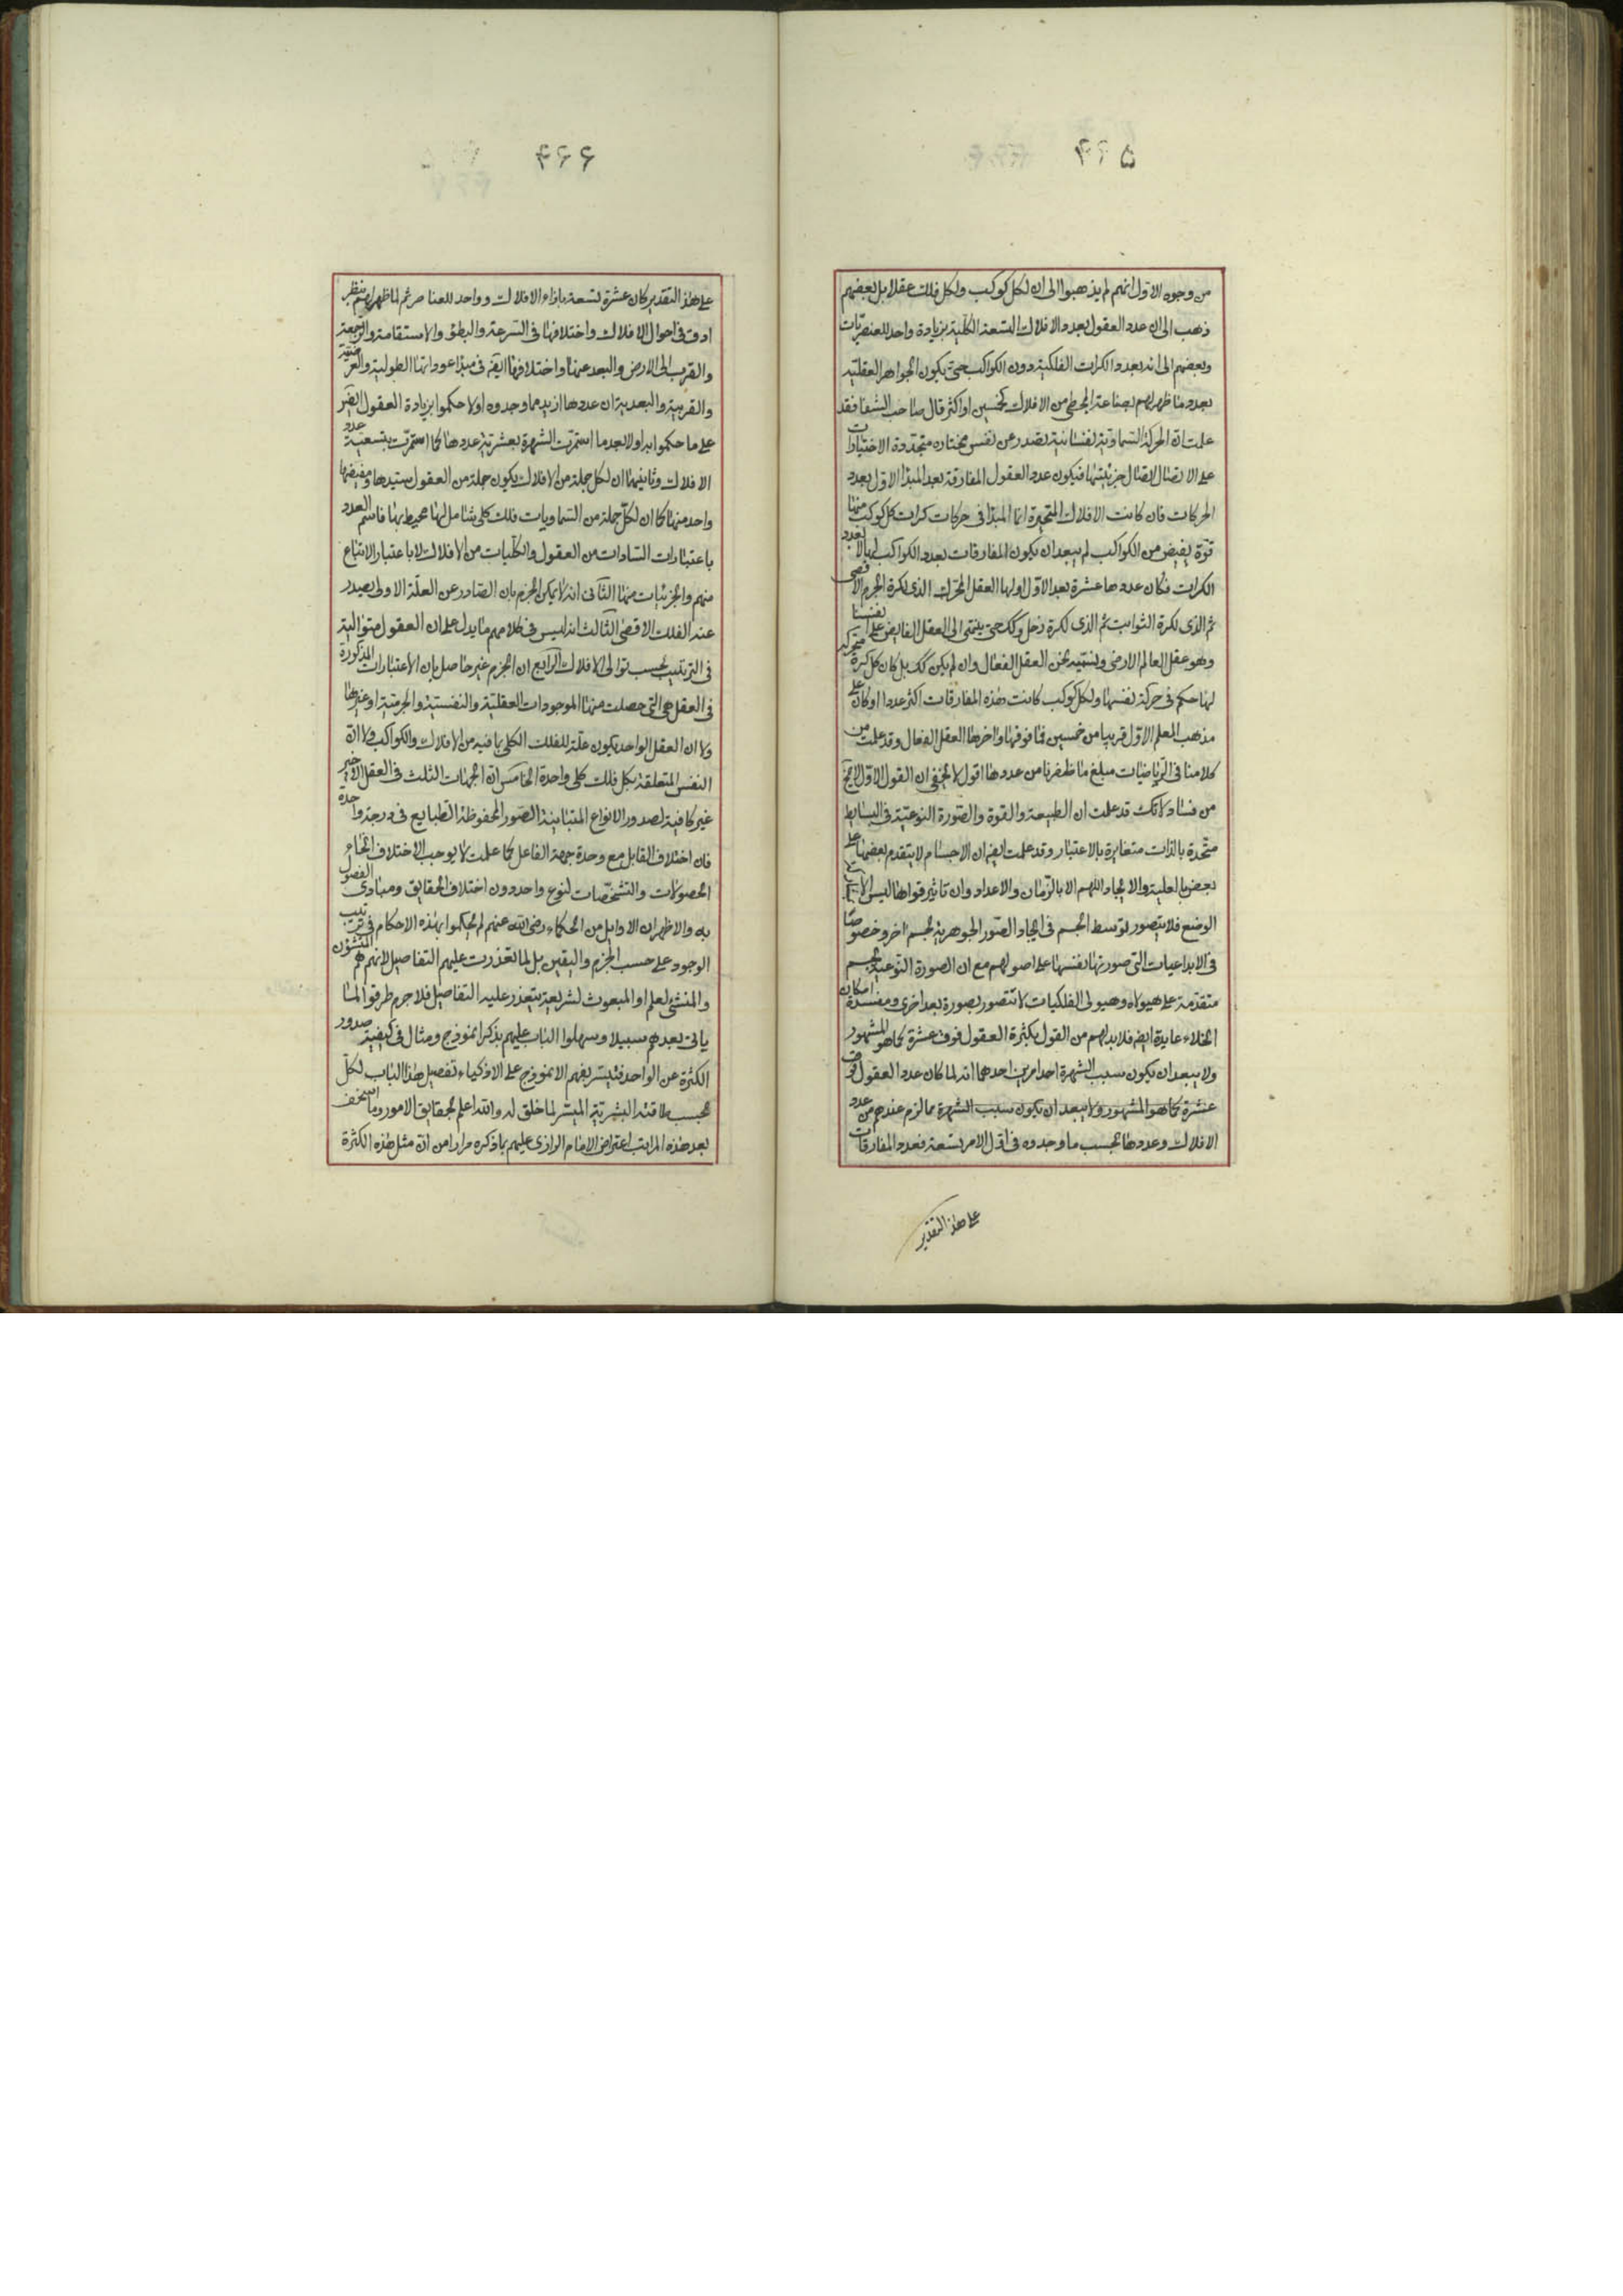 من وجوه الاول انهم لم يذهبوا الى ان لكل كوكب ولكل فلك عقلا بل بعضهم
ذهب الى ان عدد العقول بعدد الافلاك التسعة الكلية بزيادة واحد للعنصريات
وبعضهم الى انه بعدد الكرات الفلكية دون الكواكب حتى يكون الجواهر العقلية
بعدد ما ظهر لهم بصناعة المجسطى من الافلاك كخمسين او اكثر قال صاحب الشفا فقد
علمت ان الحركة السماوية نفسانية تصدر عن نفس مختارة متجددة الاختيارات
على الاتصال اتصال جزئيتها فيكون عدد العقول المفارقة بعد المبدا الاول بعدد
الحركات فان كانت الافلاك المتحيرة انما المبدا فى حركات كرات كل كوكب منها
قوة يفيض من الكواكب لم يبعد ان يكون المفارقات بعدد الكواكب لها لا بعدد
الكرات فكان عددها عشرة بعد الاول اولها العقل المحرك الذى لكرة الجرم الاقصى
ثم الذى لكرة الثوابت ثم الذى لكرة زحل وكك حتى ينتهى الى العقل الفايض على انفسنا
وهو عقل العالم الارضى ونسميه نحن العقل الفعال وان لم يكن كك بل كان كل كرة متحركة
لها حكم فى حركة نفسها ولكل كوكب كانت هذه المفارقات اكثر عددا وكان على
مذهب المعلم الاول قريبا من خمسين فما فوقها واخرها العقل الفعال وقد علمت من
كلامنا فى الرياضيات مبلغ ما ظفرنا من عددها اقول لا يخفى ان القول الاول لا يخ
من فساد لانك قد علمت ان الطبيعة والقوة والصورة النوعية فى البسايط
متحدة بالذات متغايرة بالاعتبار وقد علمت ايضا ان الاجسام لا يتقدم بعضها على
بعض بالعلية والايجاد اللهم الا بالزمان والاعداد وان تاثير قواها ليس الا
الوضع فلا يتصور توسط الجسم فى ايجاد الصور الجوهرية لجسم اخر وخصوصا
فى الابداعيات التى صورتها نفسها على اصولهم مع ان الصورة النوعية لجسم
متقدمة على هيولاه وهيولى الفلكيات لا تتصور بصورة بعد اخرى ومفسدة امكان
الخلاء عايدة ايضا فلا بد لهم من القول بكثرة العقول فوق عشرة كما هو المشهور
ولا يبعد ان يكون سبب الشهرة احد امرين احدهما انه لما كان عدد العقول فوق
عشرة كما هو المشهور ولا يبعد ان يكون سبب الشهرة مما لزم عندهم من عدد
الافلاك وعددها بحسب ما وجدوه فى اول الامر تسعة فعدد المفارقات
على هذا التقدير
على هذا التقدير كان عشرة تسعة بازاء الافلاك وواحد للعناصر ثم لما ظهر لهم بنظر
ادق فى احوال الافلاك واختلافها فى السرعة والبطؤ والاستقامة والرجعة
والقرب الى الارض والبعد عنها واختلافها ايضا فى مبدا عوداتها الطولية والعرضية
والقربية والبعدية ان عددها ازيد مما وجدوه اولا حكموا بزيادة العقول ايضا
على ما حكموا به اولا بعد ما استمرت الشهرة بعشرية عددها كما استمرت بتسعية عدد
الافلاك وثانيهما ان لكل جملة من الافلاك يكون جملة من العقول سيدها ومفيضها
واحد منها كما ان لكل جملة من السماويات فلك كلى شامل لها محيط بها فاسم العدد
باعتبار السادات من العقول والكليات من الافلاك لا باعتبار الاتباع
منهم والجزئيات منها الثانى انه لا يمكن الجزم بان الصادر عن العلة الاولى يصدر
عنه الفلك الاقصى الثالث انه ليس فى كلامهم ما يدل على ان العقول متوالية
فى الترتيب بحسب توالى الافلاك الرابع ان الجزم غير حاصل بان الاعتبارات المذكورة
فى العقل هى التى حصلت منها الموجودات العقلية والنفسية والجرمية او غيرها
ولا ان العقل الواحد يكون علة للفلك الكلى بما فيه من الافلاك والكواكب ولا ان
النفس المتعلقة بكل فلك كلى واحدة الخامس ان الجهات الثلث فى العقل الاخير
غير كافية لصدور الانواع المتباينة الصور المحفوظة الطبايع فى درجة واحدة
فان اختلاف القابل مع وحدة جهة الفاعل كما علمت لا يوجب الا اختلاف انحاء
الحصولات والتشخصات لنوع واحد دون اختلاف الحقايق ومبادى الفصول
به والاظهر ان الاوايل من الحكماء رضى الله عنهم لم يحكموا بهذه الاحكام فى ترتيب
الوجود على حسب الجزم واليقين بل لما تعذرت عليهم التفاصيل لانهم هم المنشؤن
والمنشئ لعلم او المبعوث لشريعة يتعذر عليه التفاصيل فلا جرم طرقوا لمن
ياتى بعدهم سبيلا وسهلوا الباب عليهم بذكر انموذج ومثال فى كيفية صدور
الكثرة عن الواحد فتيسر بفهم الانموذج على الاذكياء تفصيل هذا الباب لكل
بحسب طاقته البشرية الميسر لما خلق له والله اعلم بحقايق الامور وما اسخف
بعد هذه المراتب اعتراض الامام الرازى عليهم بما ذكره مرارا من ان مثل هذه الكثرة